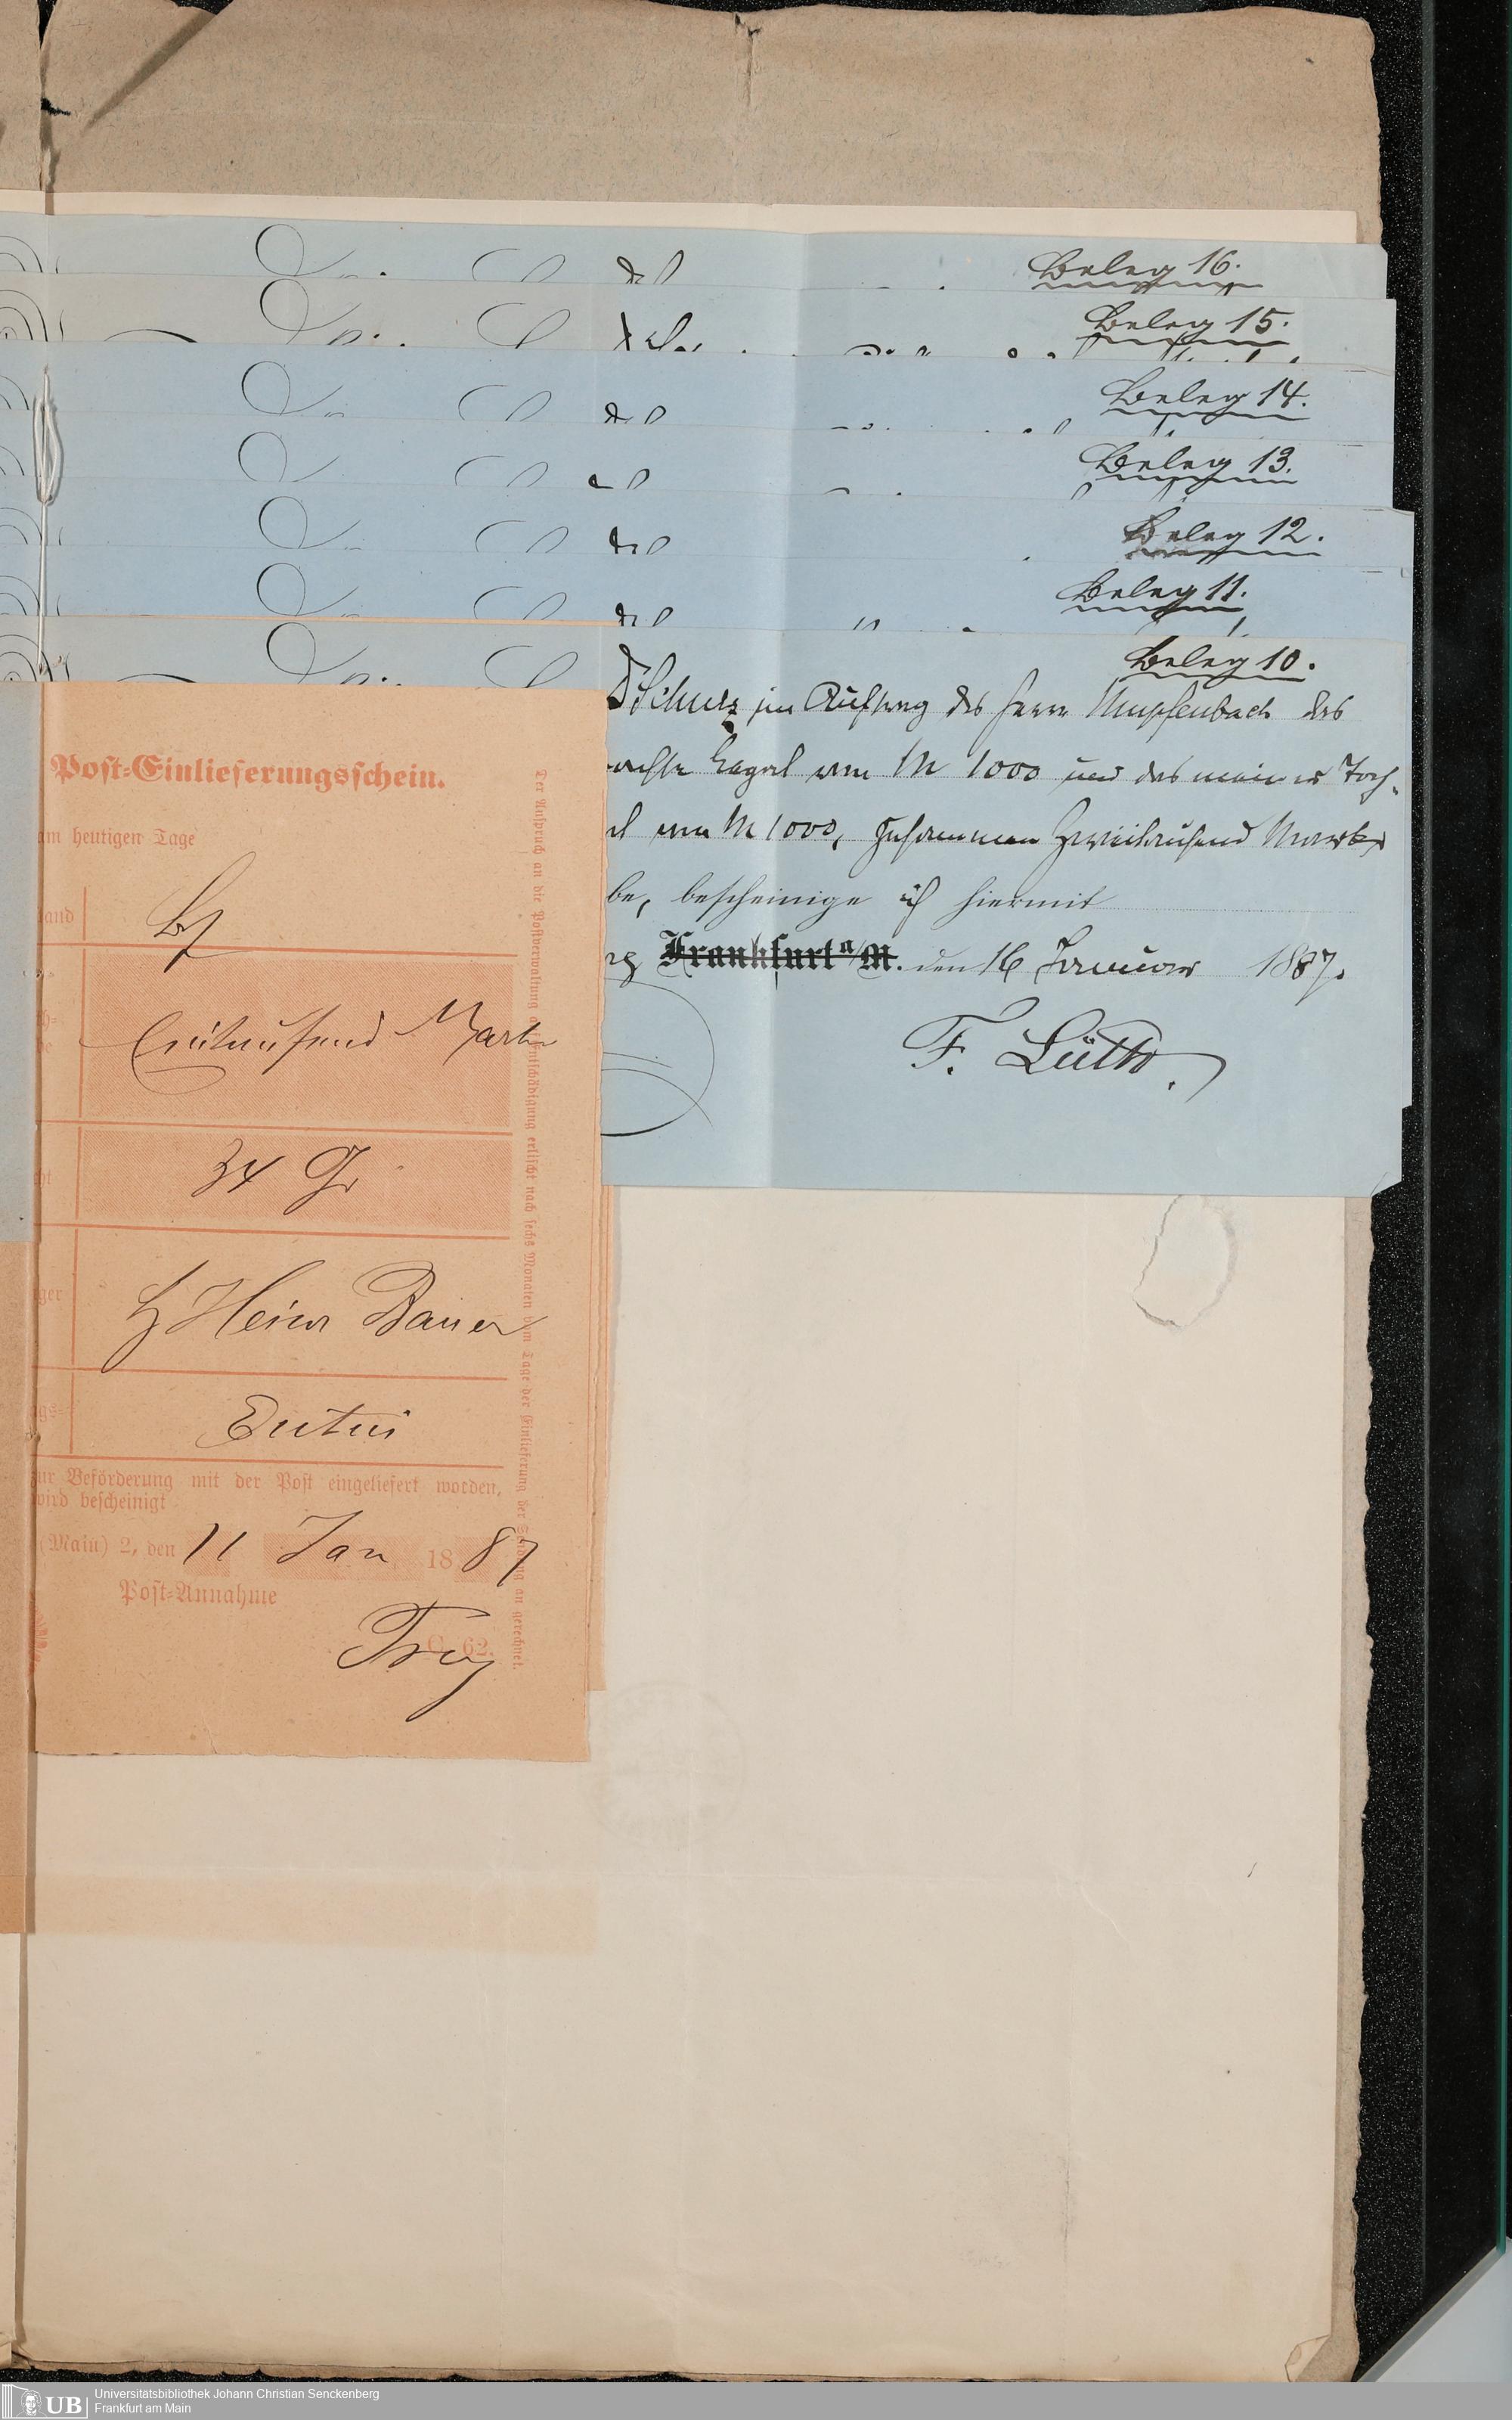 Beleg 16.
Beleg 15.
Beleg 14.
Beleg 13.
Beleg 12.
Beleg 11.
Beleg 10.
Schulz im Auftrag des Herrn Mumpfenbach das
machte Legat von M 1000 und das meiner Toch-
von M 1000, zusammen Zweitausend Mark
be, bescheinige ich hiermit
rg Frankfurt a/M. den 16 Januar 1887.
F. Lütto.
Post-Einlieferungsschein.
am heutigen Tage
and
Bf
Eintausend Mark
34 Gr
ger
H Heinr Bauer
gs-
Eutin
ur Beförderung mit der Post eingeliefert worden,
wird bescheinigt
(Main) 2, den 11 Jan 1887
Post-Annahme
C. 62.
Der Anspruch an die Postverwaltung auf Entschädigung erlischt nach sechs Monaten vom Tage der Einlieferung der Sendung an gerechnet.
UB
Universitätsbibliothek Johann Christian Senckenberg
Frankfurt am Main